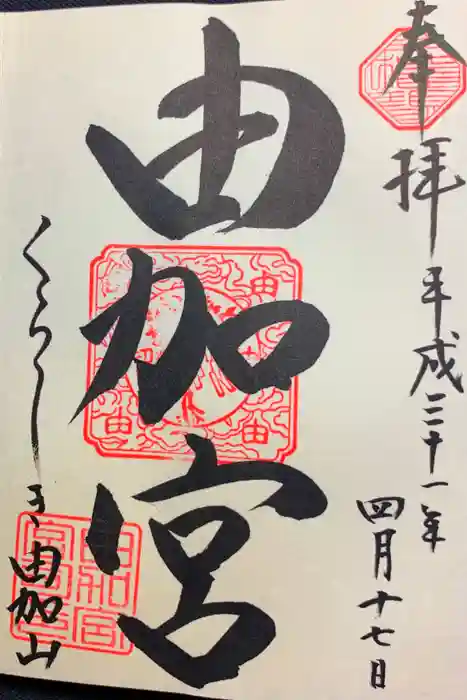 奉拝
平成三十一年
四月十七日
由加宮
くらしき由加山
由
由
由
由加宮